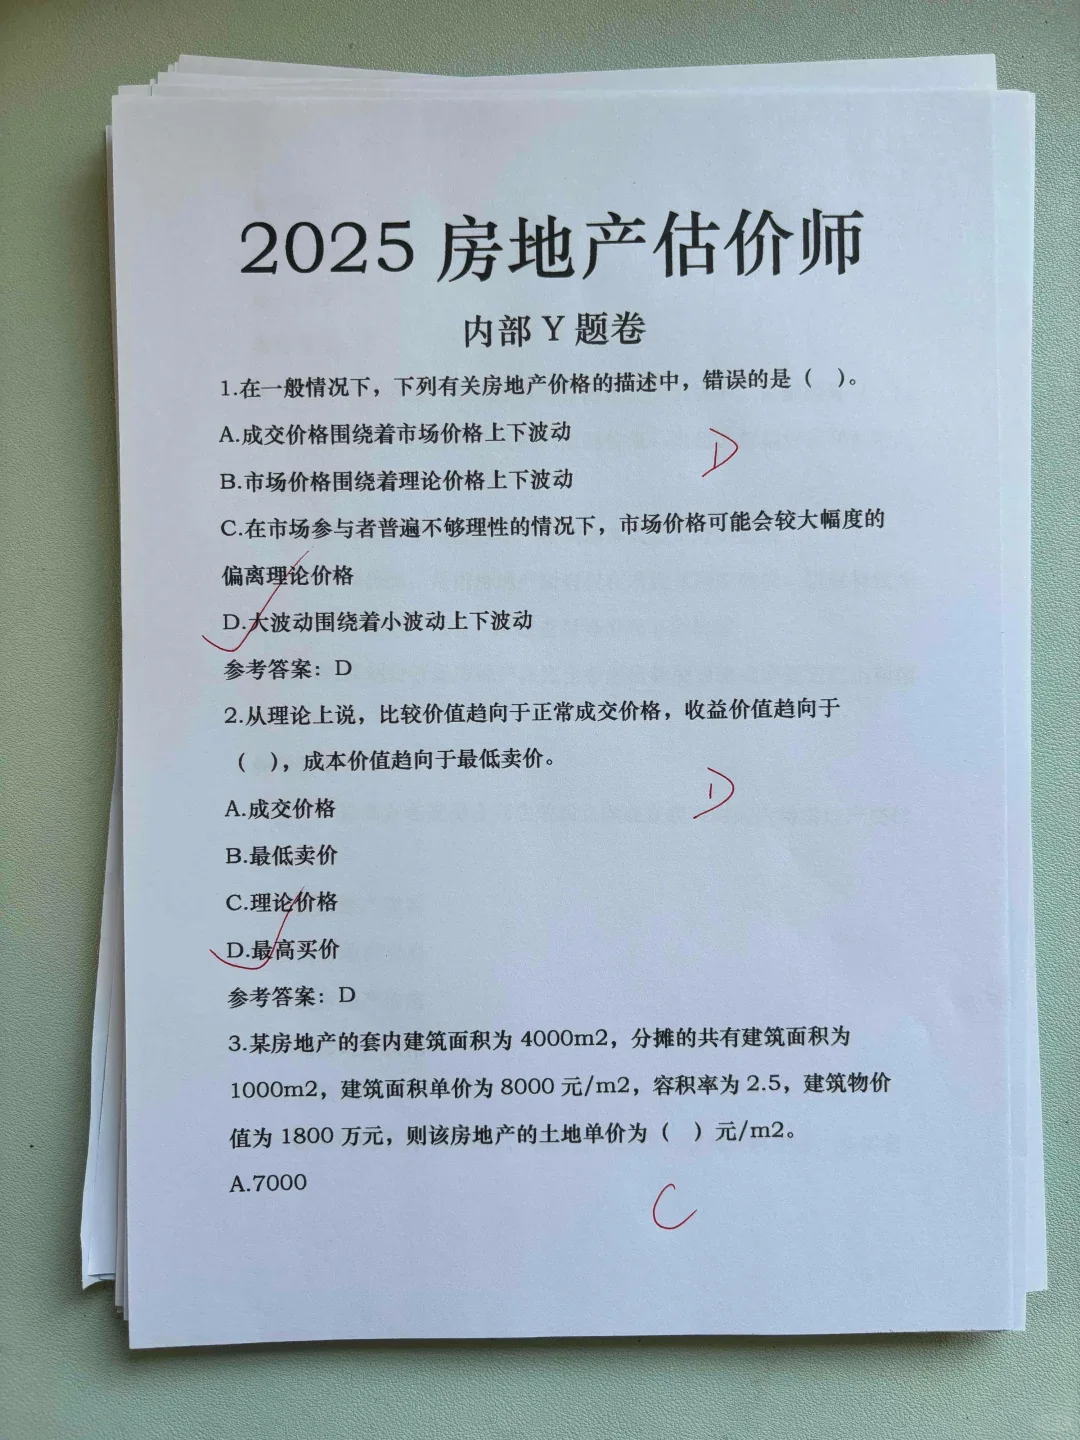 2025 房地产估价师
内部 Y 题卷
1.在一般情况下，下列有关房地产价格的描述中，错误的是（　）。
A.成交价格围绕着市场价格上下波动
D
B.市场价格围绕着理论价格上下波动
C.在市场参与者普遍不够理性的情况下，市场价格可能会较大幅度的
偏离理论价格
D.大波动围绕着小波动上下波动
参考答案：D
2.从理论上说，比较价值趋向于正常成交价格，收益价值趋向于
（　），成本价值趋向于最低卖价。
D
A.成交价格
B.最低卖价
C.理论价格
D.最高买价
参考答案：D
3.某房地产的套内建筑面积为 4000m2，分摊的共有建筑面积为
1000m2，建筑面积单价为 8000 元/m2，容积率为 2.5，建筑物价
值为 1800 万元，则该房地产的土地单价为（　）元/m2。
A.7000
C